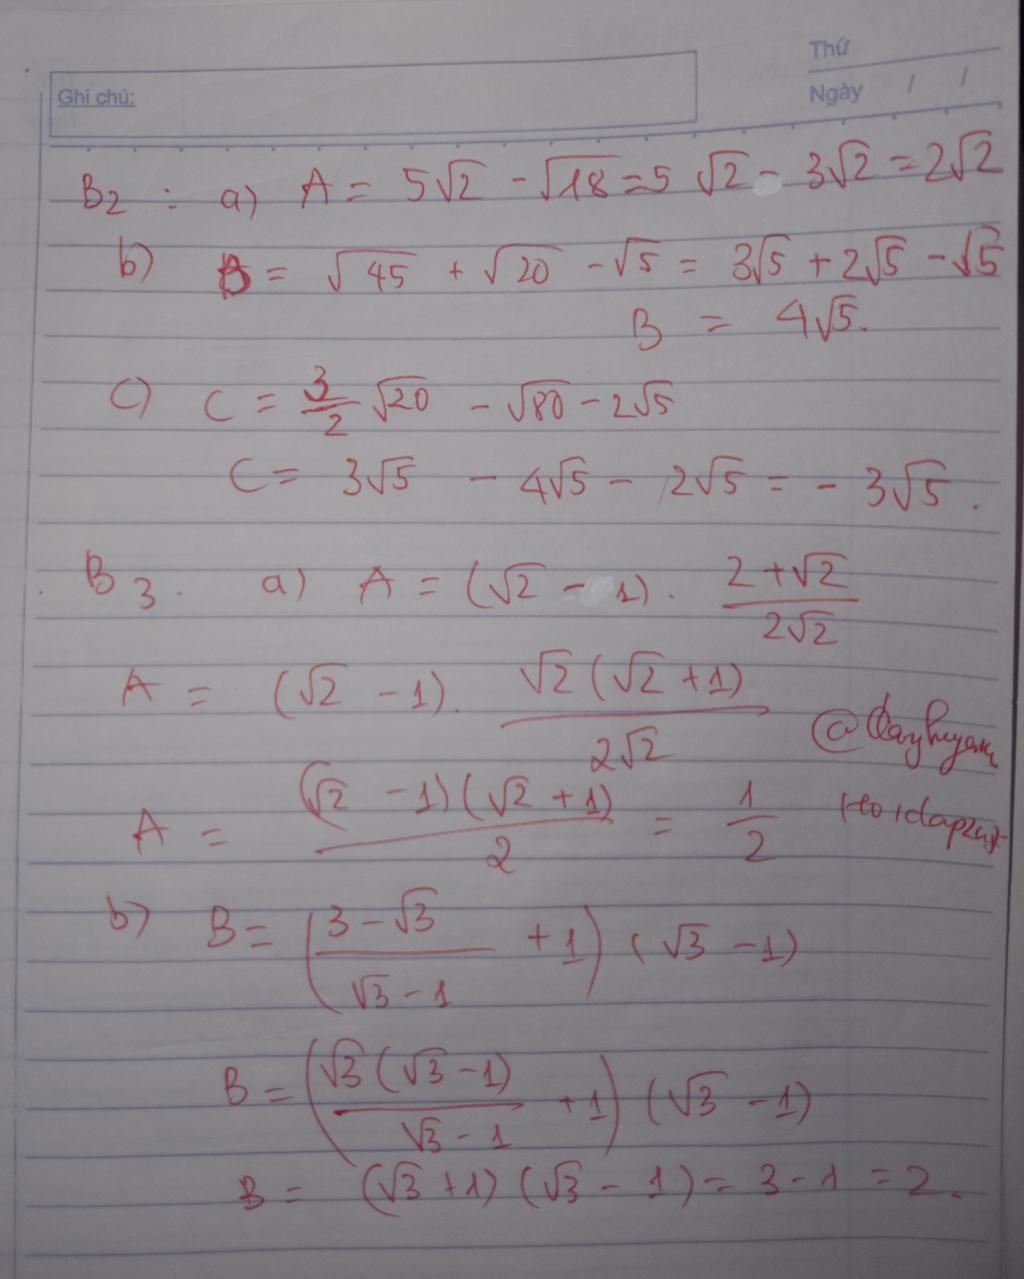 Thứ
Ghi chú:
Ngày / /
B2 : a) A = 5√2 - √18 = 5 √2 - 3√2 = 2√2
b) B = √45 + √20 - √5 = 3√5 + 2√5 - √5
B = 4√5.
c) C = 3/2 √20 - √80 - 2√5
C = 3√5 - 4√5 - 2√5 = - 3√5.
B3. a) A = (√2 - 1). (2+√2)/(2√2)
A = (√2 - 1). √2(√2+1)/(2√2)
A = (√2 - 1)(√2 + 1)/2 = 1/2
b) B = ((3-√3)/(√3-1) + 1) (√3 - 1)
B = (√3(√3-1)/(√3-1) + 1) (√3 - 1)
B = (√3 + 1) (√3 - 1) = 3 - 1 = 2.